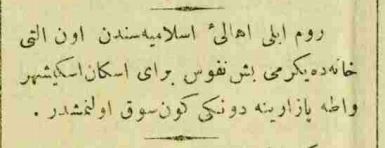 روم ایلی اهالیٔ اسلامیه‌سندن اون التی
خانه‌ده یكرمی بش نفوس برای اسكان اسكیشهر
واطه پازارینه دونكی كون سوق اولنمشدر .